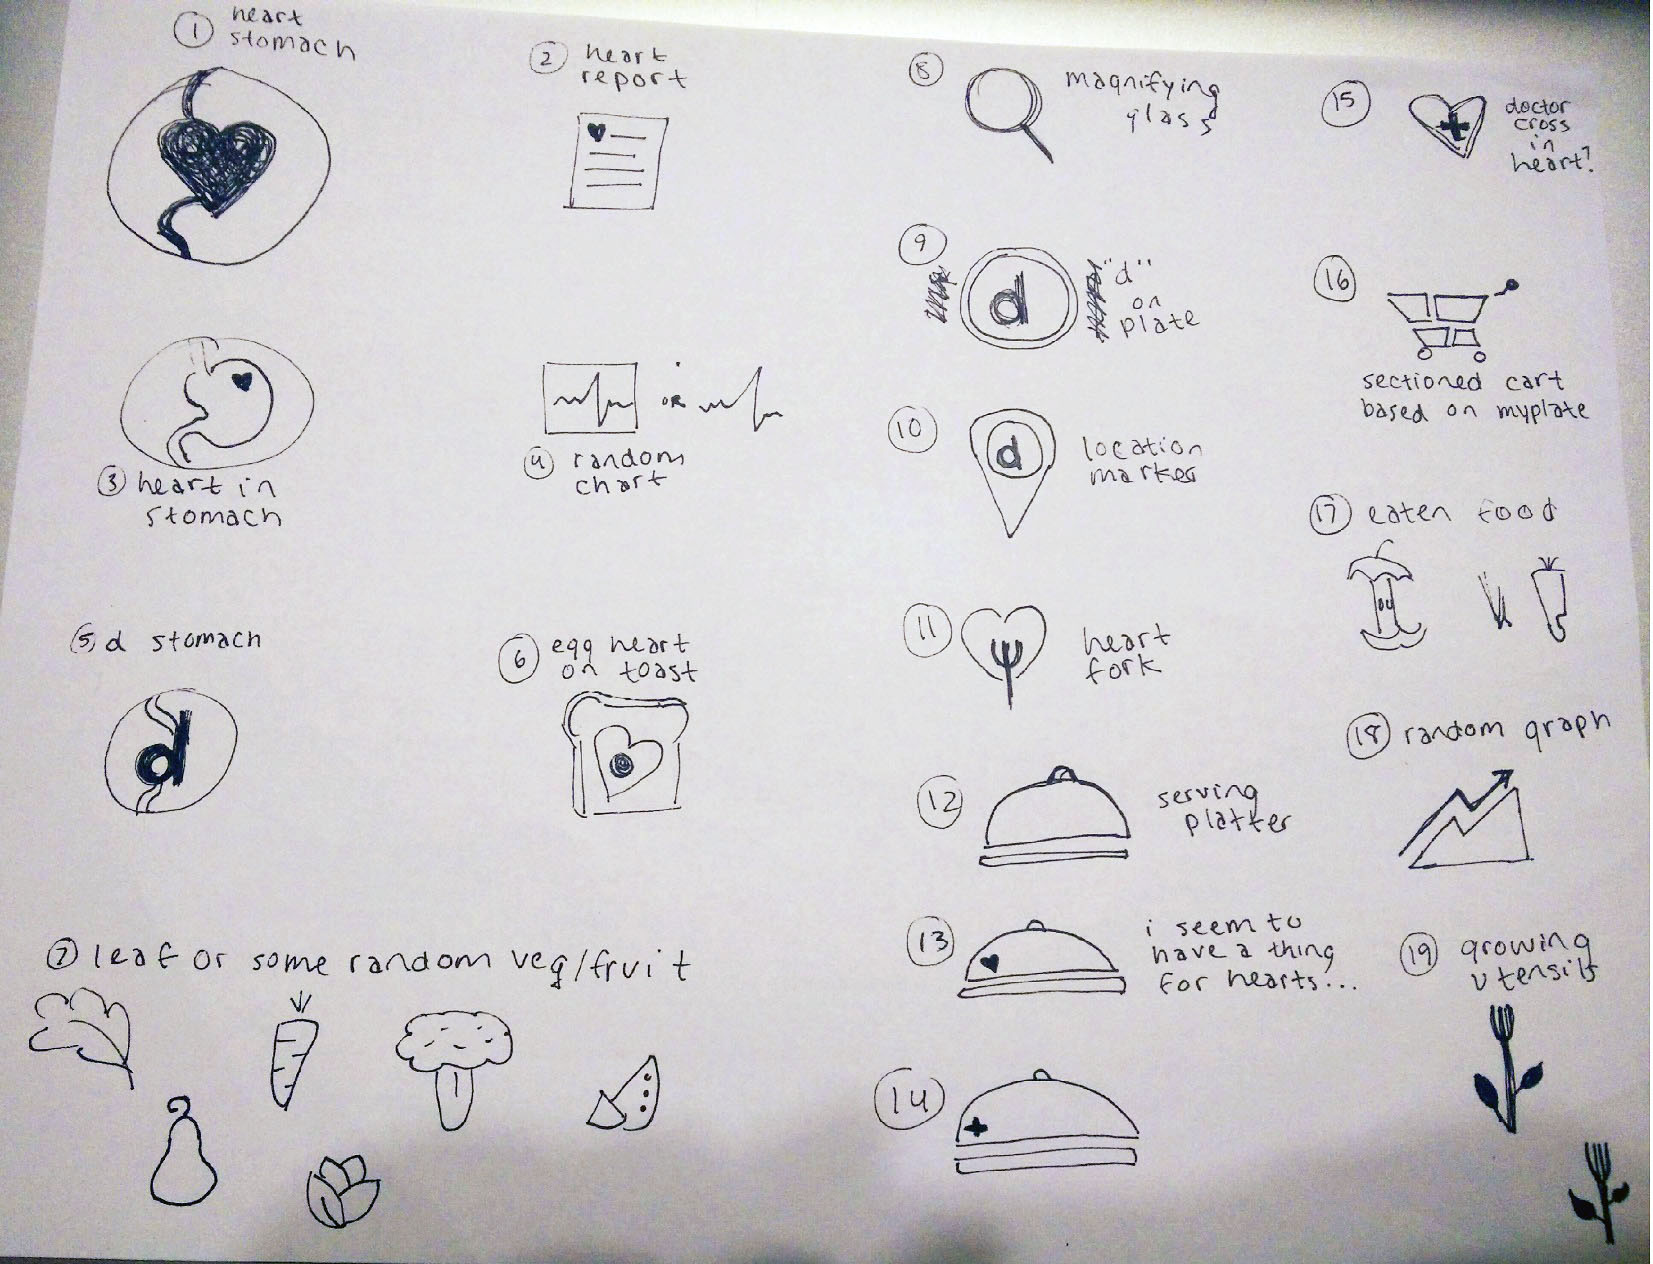 1 heart
stomach
2 heart
report
3 heart in
stomach
OR
4 random
chart
5 d stomach
d
6 egg heart
on toast
7 leaf or some random veg/fruit
8 magnifying
glass
9 "d"
on
plate
d
10 location
marker
d
11 heart
fork
12 serving
platter
13 i seem to
have a thing
for hearts...
14
15 doctor
cross
in
heart?
16
sectioned cart
based on myplate
17 eaten food
18 random graph
19 growing
utensils